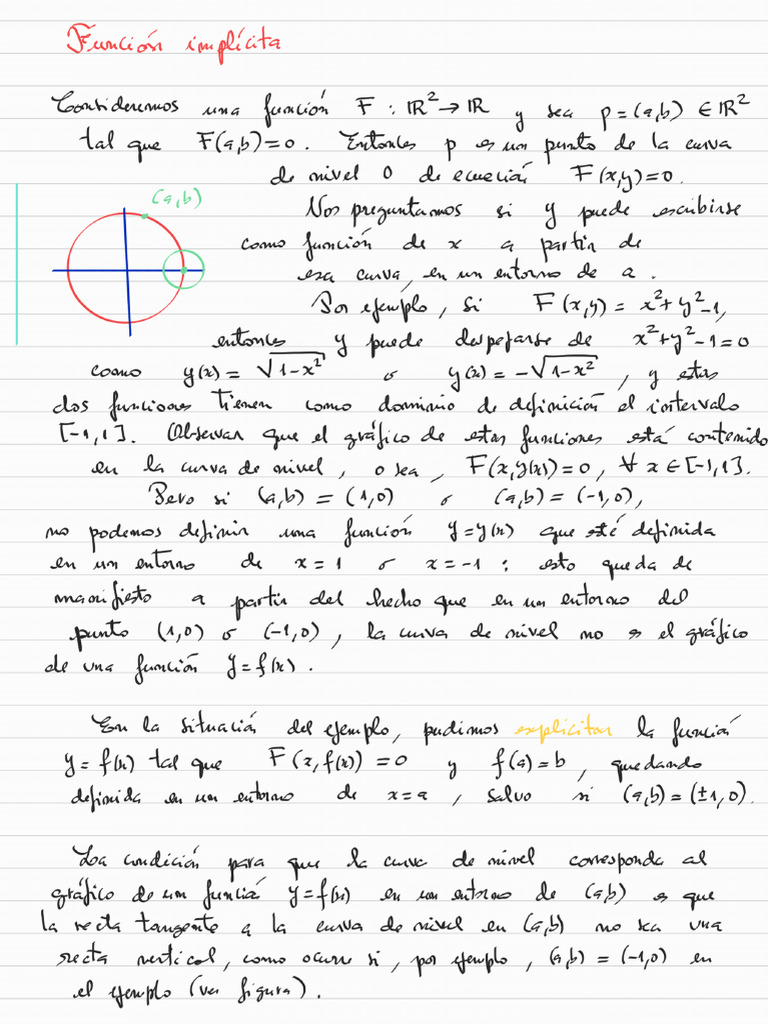 Función implícita
Consideremos una función F : ℝ² → ℝ y sea p = (a,b) ∈ ℝ²
tal que F(a,b) = 0. Entonces p es un punto de la curva
de nivel 0 de ecuación F(x,y) = 0.
(a,b)
Nos preguntamos si y puede escribirse
como función de x a partir de
esa curva, en un entorno de a.
Por ejemplo, si F(x,y) = x²+y²-1,
entonces y puede despejarse de x²+y²-1=0
como y(x) = √(1-x²) o y(x) = -√(1-x²), y estas
dos funciones tienen como dominio de definición el intervalo
[-1,1]. Observar que el gráfico de estas funciones está contenido
en la curva de nivel, o sea, F(x,y(x)) = 0, ∀ x ∈ [-1,1].
Pero si (a,b) = (1,0) o (a,b) = (-1,0),
no podemos definir una función y=y(x) que esté definida
en un entorno de x = 1 o x = -1 : esto queda de
manifiesto a partir del hecho que en un entorno del
punto (1,0) o (-1,0), la curva de nivel no es el gráfico
de una función y = f(x).
En la situación del ejemplo, pudimos explicitar la función
y = f(x) tal que F(x, f(x)) = 0 y f(a) = b, quedando
definida en un entorno de x = a, salvo si (a,b) = (±1,0).
La condición para que la curva de nivel corresponda al
gráfico de un función y = f(x) en un entorno de (a,b) es que
la recta tangente a la curva de nivel en (a,b) no sea una
recta vertical, como ocurre si, por ejemplo, (a,b) = (-1,0) en
el ejemplo (ver figura).